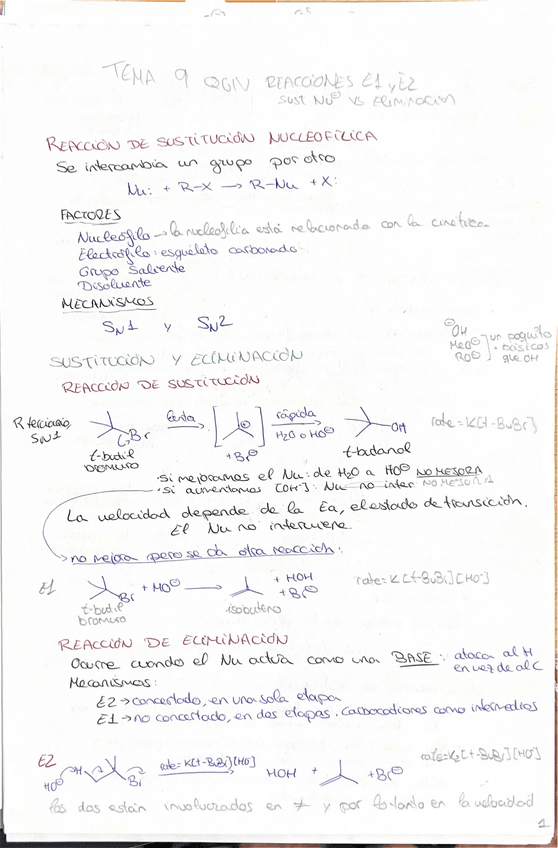 TEMA 9 QGIV REACCIONES E1 y E2
SUST NU⊖ VS ELIMINACIÓN
REACCIÓN DE SUSTITUCIÓN NUCLEOFÍLICA
Se intercambia un grupo por otro
Nu: + R-X → R-Nu + X:
FACTORES
Nucleófilo → la nucleofilia está relacionada con la cinética
Electrófilo: esqueleto carbonado
Grupo Saliente
Disolvente
MECANISMOS
SN1 y SN2
⊖OH
MeO⊖
RO⊖
un poquito
+ básicos
que OH
SUSTITUCIÓN Y ELIMINACIÓN
REACCIÓN DE SUSTITUCIÓN
R terciario
SN1
Br
lenta
⊕
+ Br⊖
rápida
H2O o HO⊖
OH
rate = K[t-BuBr]
t-butil
bromuro
t-butanol
· si mejoramos el Nu: de H2O a HO⊖ NO MEJORA
· si aumentamos [OH-]: Nu no inter NO MEJORA
La velocidad depende de la Ea, el estado de transición.
El Nu no interviene.
no mejora pero se da otra reacción:
E1
Br + HO⊖ → + HOH
+ Br⊖
rate = K[t-BuBr][HO-]
t-butil
bromuro
isobuteno
REACCIÓN DE ELIMINACIÓN
Ocurre cuando el Nu actúa como una BASE: ataca al H
en vez de al C
Mecanismos:
E2 → concertado, en una sola etapa
E1 → no concertado, en dos etapas. Carbocationes como intermedios
E2
HO⊖ H Br
rate = K[t-BuBr][HO-]
HOH + + Br⊖
rate = K2[t-BuBr][HO-]
los dos están involucrados en ≠ y por lo tanto en la velocidad
1